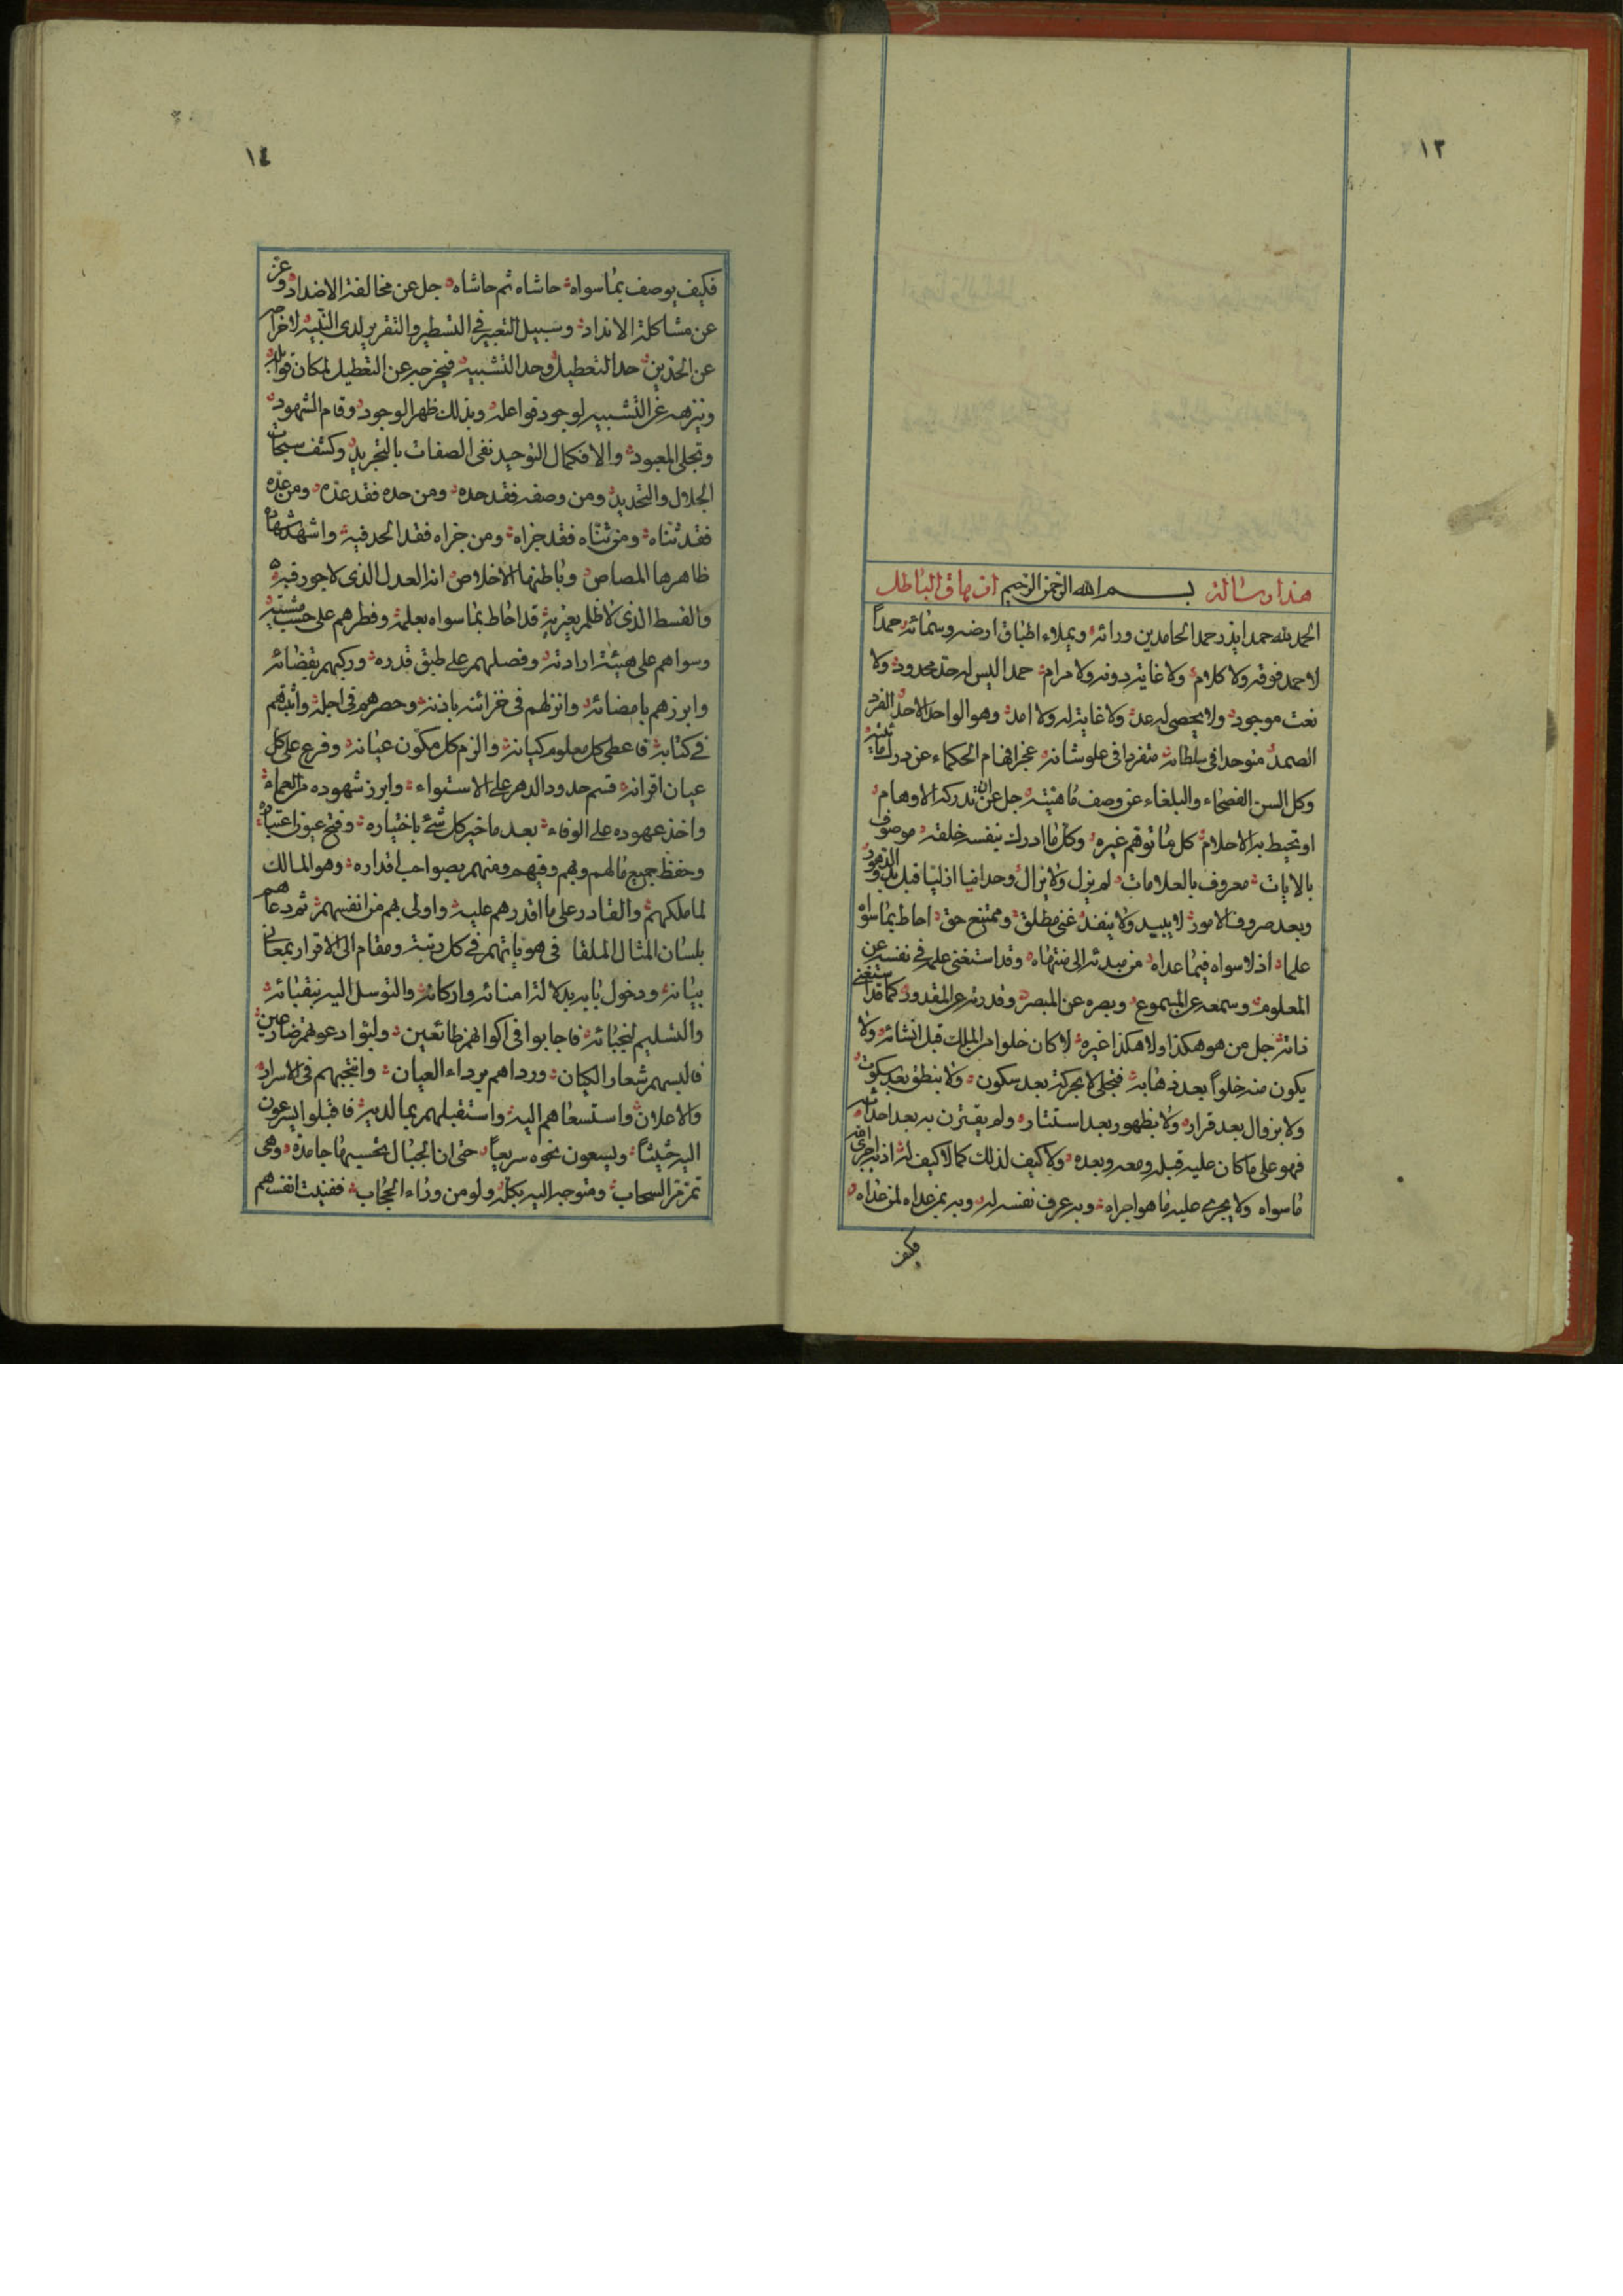 ١٣
هذا رسالة بسم الله الرحمن الرحيم ازهاق الباطل
الحمد لله حمدا يقدر حمد الحامدين ورائه ويملاء اطباق ارضه وسمائه حمداً
لا حمد فوقه ولا كلام ولا غاية دونه ولا مرام حمدا ليس له حد محدود ولا
نعت موجود ولا يحصى له عد ولا غاية له ولا امد وهو الواحد الاحد الفرد
الصمد متوحدا فى سلطانه متفردا فى علو شانه عجز افهام الحكماء عن درك مائيته
وكل السن الفصحاء والبلغاء عن وصف ماهيته جل عن ان تدركه الاوهام
او تحيط به الاحلام كل ما توهم غيره وكل ما ادرك بنفسه خلقته موصوف
بالايات معروف بالعلامات لم يزل ولا يزال وحدانيا ازليا قبل بدو الدهور
وبعد صروف الامور لا يبيد ولا ينفد غنى مطلق وممتنع حق احاط بما سواه
علما اذ لا سواه فيما عداه من مبدئه الى منتهاه وقد استغنى علمه فى نفسه عن
المعلوم وسمعه عن المسموع وبصره عن المبصر وقدرته عن المقدور كما قد استغنى
ذاته جل من هو هكذا ولا هكذا غيره لا كان خلوا من الملك قبل انشائه ولا
يكون منه خلواً بعد ذهابه فتجلى لا بحركة بعد سكون ولا بنطق بعد سكوت
ولا بزوال بعد قرار ولا بظهور بعد استتار ولم يقترن به بعد احداثه
فهو على ما كان عليه قبله ومعه وبعده ولا كيف لذلك كما لا كيف له اذ به اجرى
ما سواه ولا يجرى عليه ما هو اجراه وبه عرف نفسه له وبه بمن عداه لمن عداه
فكيف
١٤
فكيف يوصف بما سواه حاشاه ثم حاشاه جل عن مخالفة الاضداد وعز
عن مشاكلة الانداد وسبيل التعبير فى التسطير والتقرير لدى التنبيه لاخراجه
عن الحدين حد التعطيل وحد التشبيه فيخرجه عن التعطيل لمكان قوابله
وينزهه عن التشبيه لوجود فواعله وبذلك ظهر الوجود وقام الشهود
وتجلى المعبود والا فكمال التوحيد نفى الصفات بالتجريد وكشف سبحات
الجلال والتحديد ومن وصفه فقد حده ومن حده فقد عده ومن عده
فقد ثناه ومن ثناه فقد جزاه ومن جزاه فقد الحد فيه واشهد شهادة
ظاهرها المصاص وباطنها الاخلاص انه العدل الذى لا جور فيه
والقسط الذى لا ظلم يعتريه قد احاط بما سواه بعلمه وفطرهم على حسب مشيته
وسواهم على هيئة ارادته وفصلهم على طبق قدره وركبهم بقضائه
وابرزهم بامضائه وانزلهم فى خزائنه باذنه وحصرهم فى اجله واثبتهم
فى كتابه فاعطى كل معلوم كيانه والزم كل مكون عيانه وفرع على كل
عيان اقرانه قسم حدود الدهر على الاستواء وابرز شهوده من العماء
واخذ عهوده على الوفاء بعد ما خير كل شئ باختياره وفتح عيون اعتباره
وحفظ جميع ما لهم وبهم وفيهم ومنهم بصواحب اقداره وهو المالك
لما ملكهم والقادر على ما اقدرهم عليه واولى بهم من انفسهم ثم دعاهم
بلسان المثال الملقا فى هوياتهم فى كل رتبة ومقام الى الاقرار بمعانى
بيانه ودخول بابه بدلالة امنائه واركانه والتوسل اليه بنقبائه
والتسليم لنجبائه فاجابوا فى اكوانهم طائعين ولبوا دعوتهم ضارعين
فالبسهم شعار الكيان ورداهم برداء العيان وانتجبهم فى الاسرار
والاعلان واستسعاهم اليه واستقبلهم بما لديه فاقبلوا يسرعون
اليه حثيثاً ويسعون نحوه سريعاً حتى ان الجبال تحسبها جامدة وهى
تمر مر السحاب ومتوجه اليه بكله ولو من وراء الحجاب ففنيت انفسهم